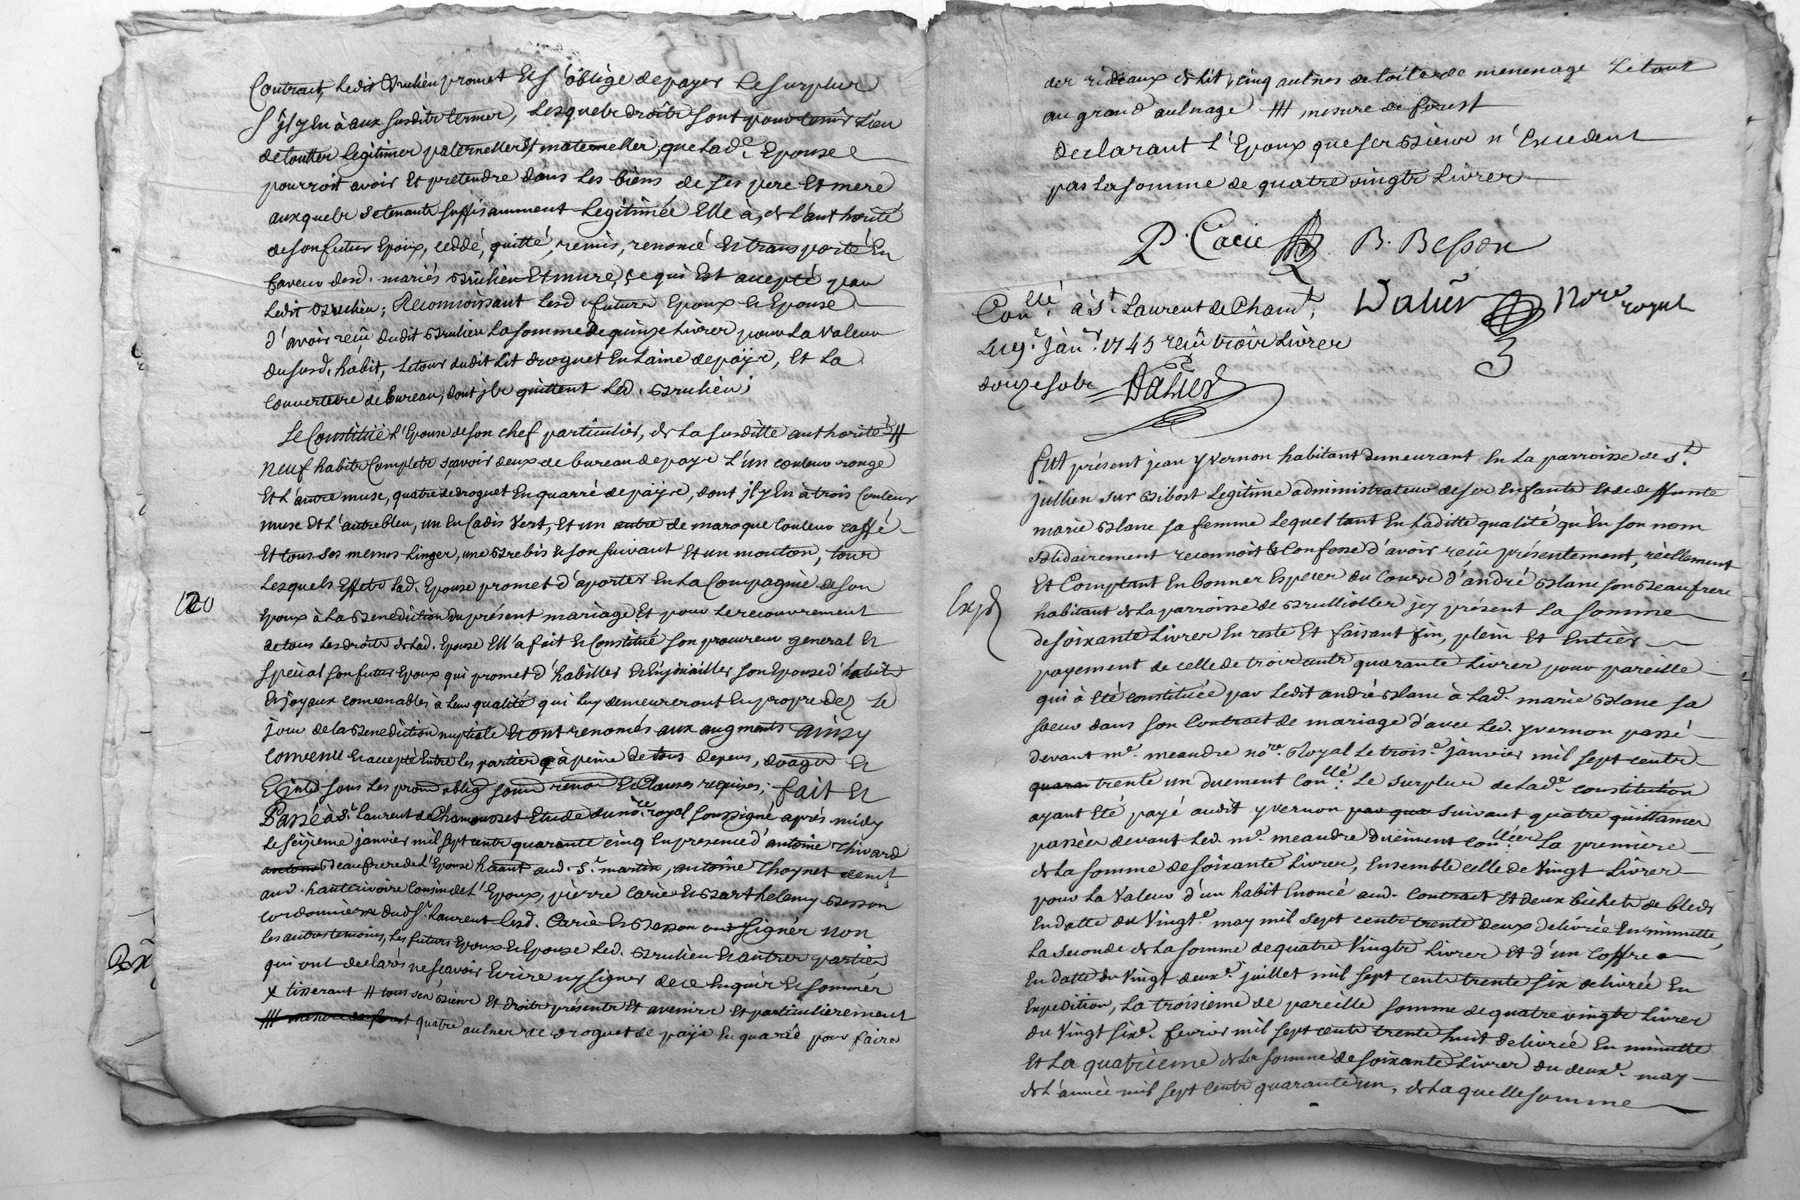 Contract, Ledit Brulieu promet Et s'oblige de payer Le surplus
s'jl y En à aux susdits termes, Lesquels droits sont pour tenir Lieu
de toutes Legitimes paternelles Et maternelles, que Lad.e Epouse
pourroit avoir Et pretendre dans Les biens de ses pere Et mere
auxquels se tenants suffisamment Legitimée Elle à, de L'authorité
de son futur Epoux, ceddé, quitté, remis, renoncé Et transporté En
faveur desd. mariés Brulieu Et mure, ce qui Est accepté par
Ledit Brulieu; Reconnoissant Lesd futurs Epoux Et Epouse
d'avoir reçû dudit Brulieu La somme de quinze Livres pour La valeur
du susd. habit, Le tour dudit Lit droguet En Laine de païs, Et La
Couverture de bureau, dont jls quittent Led. Brulieu;
Se Constitüe L'Epouse de son chef particulier, de La susditte authorité #
neuf habits Complets sçavoir deux de bureau de païs L'un couleur rouge
Et L'autre muse, quatre de droguet En quarré de païs, dont jl y En à trois Couleur
muse Et L'autre bleu, un En Cadis Vert, Et un autre de maroque Couleur caffé
Et tous ses menus Linges, une Brebis Et son suivant Et un mouton, tous
Lesquels Effets Lad. Epouse promet d'aporter En La Compagnie de son
Epoux à La Benediction du présent mariage Et pour Le recouvrement
de tous Les droits de Lad. Epouse Elle a fait Et Constitüé son procureur general Et
spécial son futur Epoux qui promet d'habiller Et Enjoüailler son Epouse d'habits
Et joyaux convenables à Leur qualité qui Luy demeureront En propre dez Le
jour de la Benediction nuptiale Et ont renoncés aux augments ainsy
Convenu Et accepté Entre Les parties à peine de tous depens, domages Et
sous Les prom oblig soum renon Et Clauses requises; fait Et
Passé à St. Laurent de Chamousset Etude du no.re royal soussigné aprés midy
Le seizieme janvier mil sept cents quarante cinq En presence d'antoine Thivard
Beaufrere de L'Epouse hant aud. St. martin, antoine Thoynet demt
aud. hauterivoire Cousin de L'Epoux, pierre Carie Et Barthelemy Besson
cordonniers dud St. Laurent Lesd. Carie Et Besson ont signér non
Les autres temoins, Les futurs Epoux Et Epouse Led. Brulieu Et autres parties
qui ont declarés ne sçavoir Ecrire ny signer de ce Enquis Et sommés
x tisserant # tous ses Biens Et droits présents Et avenirs Et particulierement
quatre aulnes de droguet de païs En quarré pour faire
120
des rideaux de Lit, cinq aulnes de toile de menenage Le tout
au grand aulnage # mesure de forest
declarant L'Epoux que ses Biens n'Excedent
pas La somme de quatre vingts Livres
P. Carie B. Besson
Con.llé à St. Laurent de Cham.t, Dalier Nore royal
Le 19.e jàn.r 1745 reçû trois Livres
douze sols Dalier
Exp.d
Fut présent jean yvernon habitant demeurant En La parroisse de St.
jullien sur Bibost Legitime administrateur de ses Enfants Et de deffunte
marie Blanc sa femme Lequel tant En Laditte qualité qu'En son nom
solidairement reconnoit & Confesse d'avoir reçû présentement, réellement
Et Comptant En bonnes Especes du Cours d'andré Blanc son Beaufrere
habitant de La parroisse de Brullioles jcy présent La somme
de soixante Livres En reste Et faisant fin, plein Et Entier
payement de celle de trois cents quarante Livres pour pareille
qui à Eté constituée par Ledit andré Blanc à Lad. marie Blanc sa
soeur dans son Contract de mariage d'avec Led. yvernon passé
devant me. meandre nore. Royal Le trois.e janvier mil sept cents
quaran trente un duement Con.llé Le surplus de Lad.e constitution
ayant Eté payé audit yvernon par qua suivant quatre quittances
passées devant Led. me. meandre düement Con.llées La premiere
de La somme de soixante Livres, Ensemble celle de Vingt Livres
pour La Valeur d'un habit Enoncé aud. Contract Et deux bichets de bleds
En datte du Vingt.e may mil sept cents trente deux delivrée En minutte,
La seconde de La somme de quatre Vingts Livres Et d'un Coffre
En datte du Vingt deux.e juillet mil sept cents trente six delivrée En
Expedition, La troisieme de pareille somme de quatre vingts Livres
du Vingt six.e fevrier mil sept cents trente huit delivrée En minutte
Et La quatrieme de La somme de soixante Livres du deux.e may
de L'année mil sept cents quarante un, de Laquelle somme